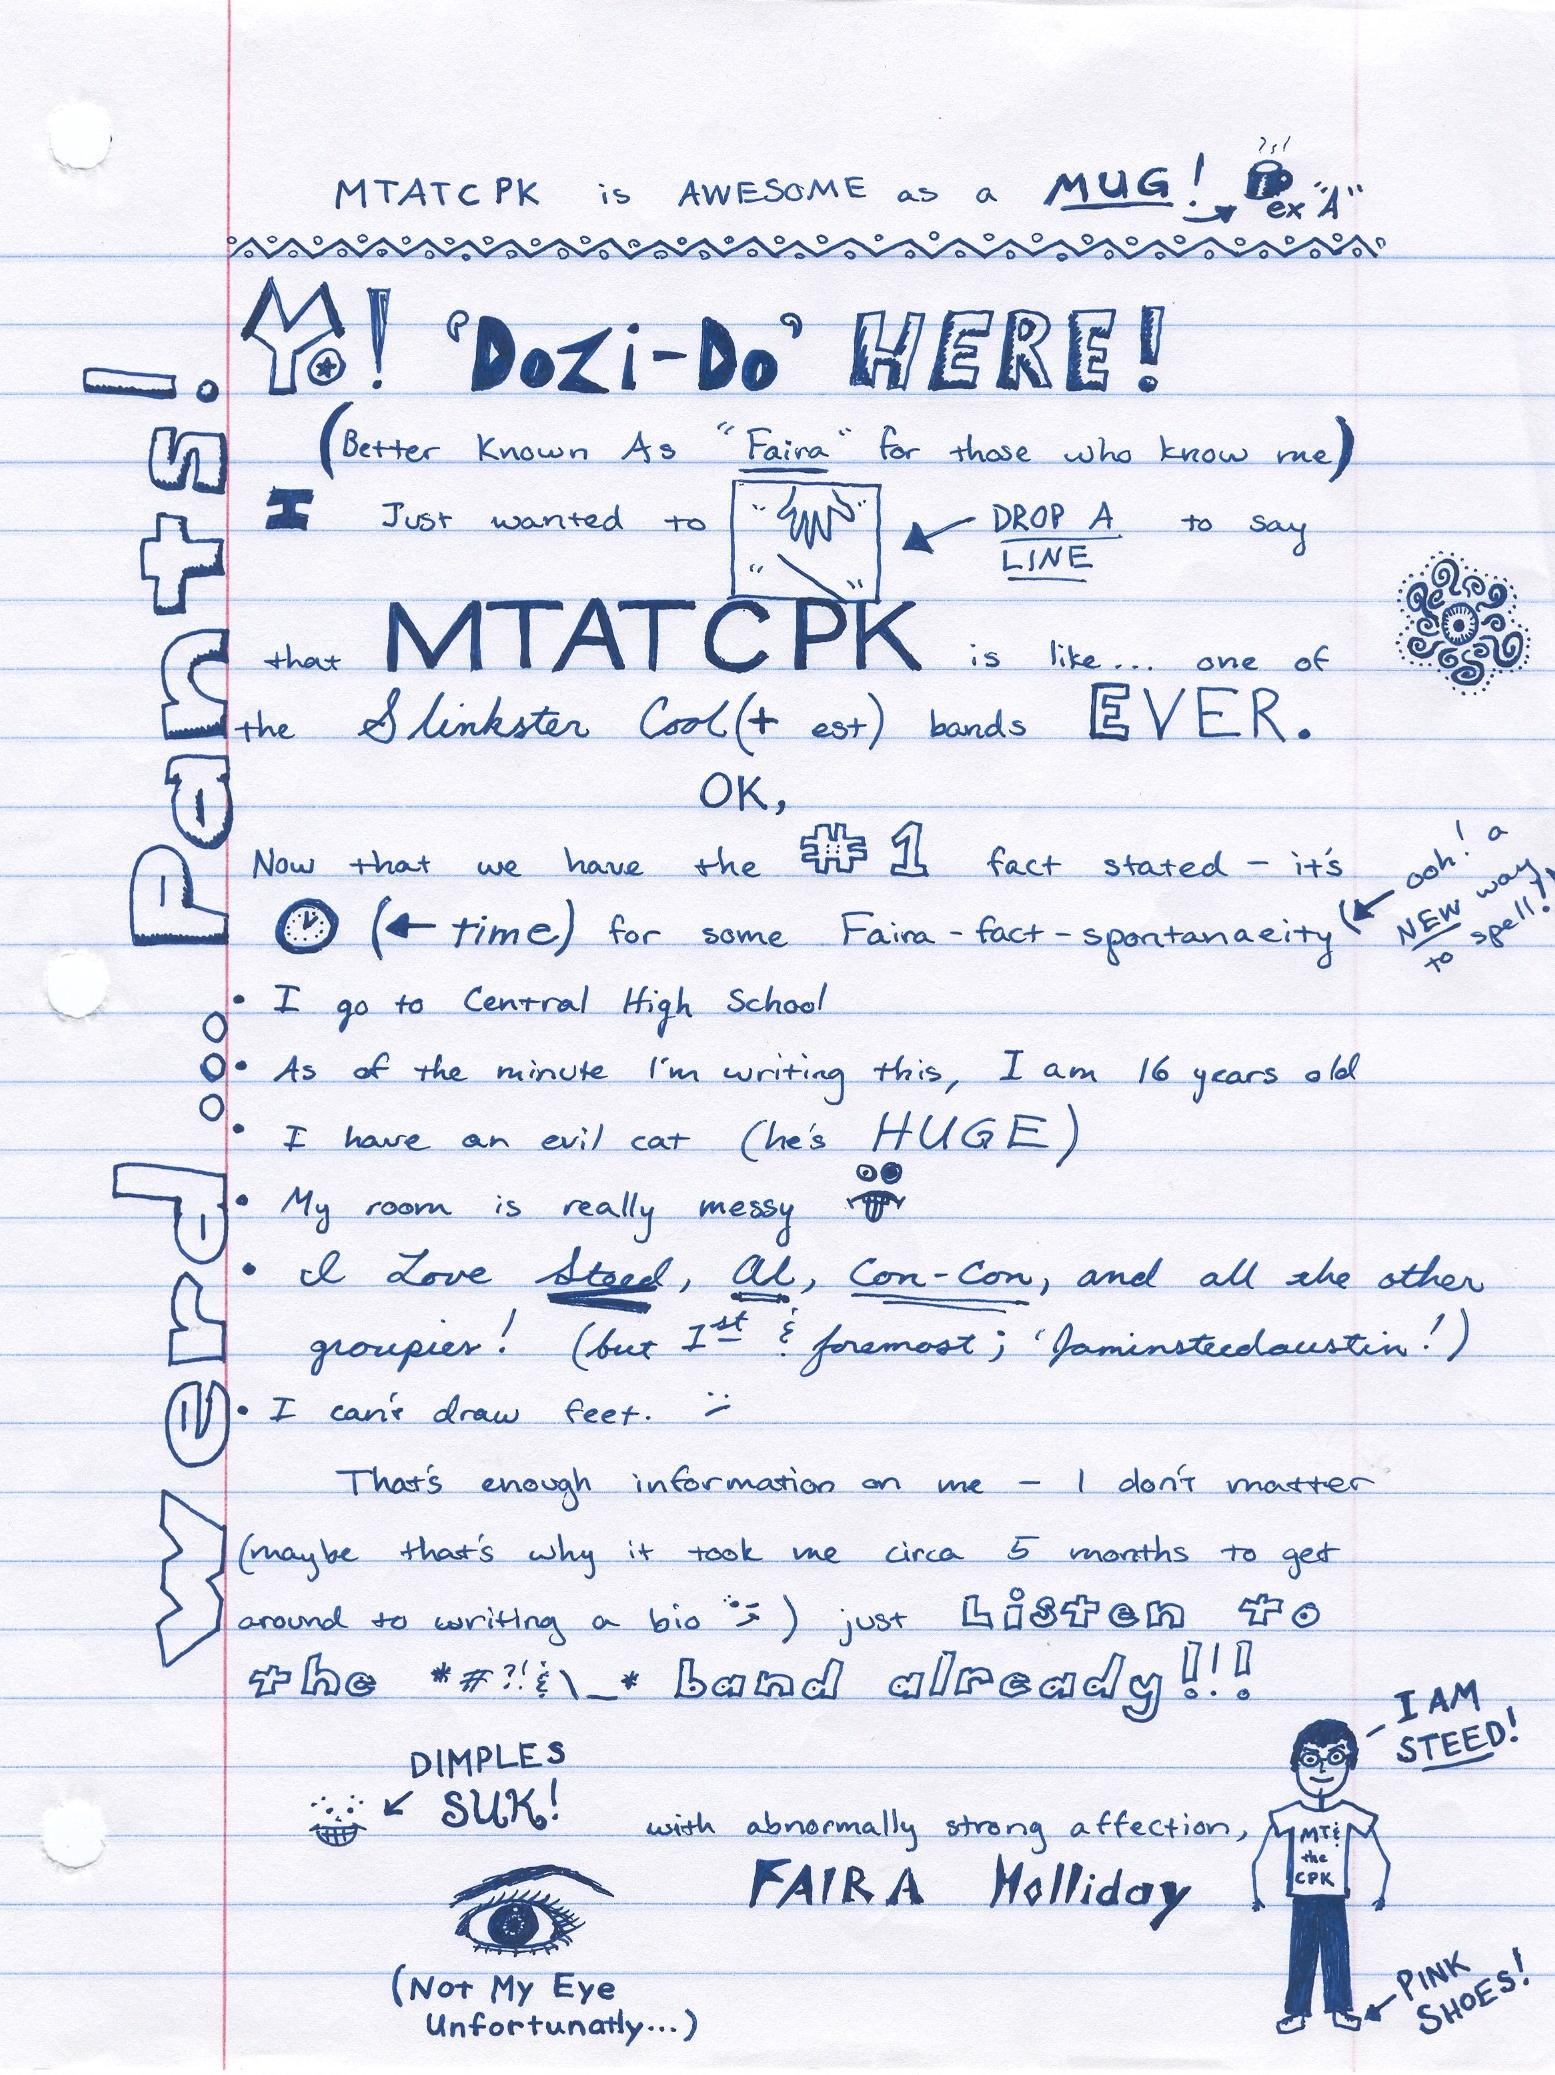 MTATCPK is AWESOME as a MUG! ex "A"
Yo! 'Dozi-Do' HERE!
(Better Known As "Faira" for those who know me)
I Just wanted to DROP A LINE to say
that MTATCPK is like... one of
the Slinkster Cool (+ est) bands EVER.
OK,
Now that we have the #1 fact stated - it's
(← time) for some Faira-fact-spontanaeity
(← ooh! a NEW way to spell!)
• I go to Central High School
• As of the minute I'm writing this, I am 16 years old
• I have an evil cat (he's HUGE)
• My room is really messy
• I Love Steed, Al, Con-Con, and all the other
groupies! (but 1st & foremost; 'Jaminsteedaustin!)
• I can't draw feet. :/
That's enough information on me - I don't matter
(maybe that's why it took me circa 5 months to get
around to writing a bio ) just Listen to
the *#?!&\_* band already!!!
Werd... Pants!
DIMPLES
SUK!
with abnormally strong affection,
FAIRA Holliday
(Not My Eye
Unfortunatly...)
I AM
STEED!
MT&
the
CPK
PINK
SHOES!